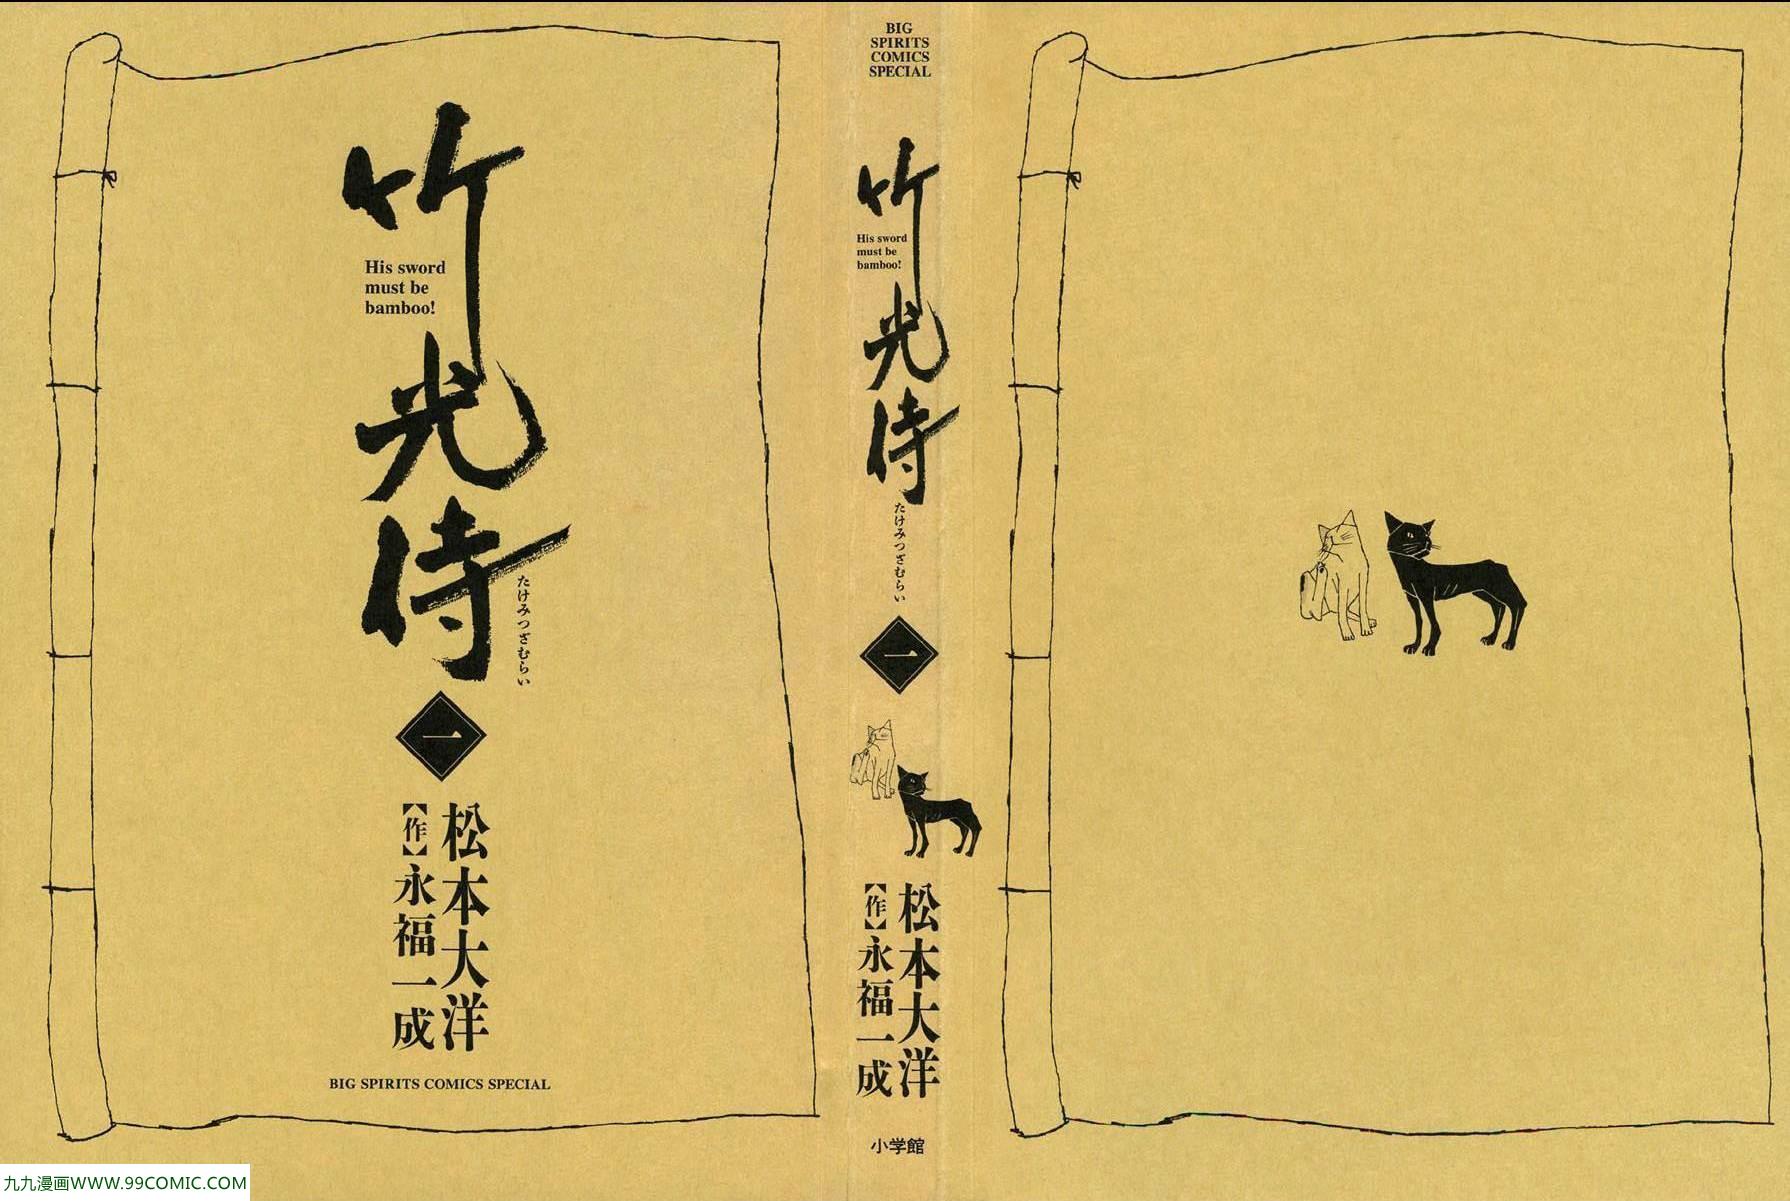 竹光侍
His sword
must be
bamboo!
たけみつざむらい
一
松本大洋
【作】永福一成
BIG SPIRITS COMICS SPECIAL
BIG
SPIRITS
COMICS
SPECIAL
竹光侍
His sword
must be
bamboo!
たけみつざむらい
一
松本大洋
【作】永福一成
小学館
九九漫画WWW.99COMIC.COM